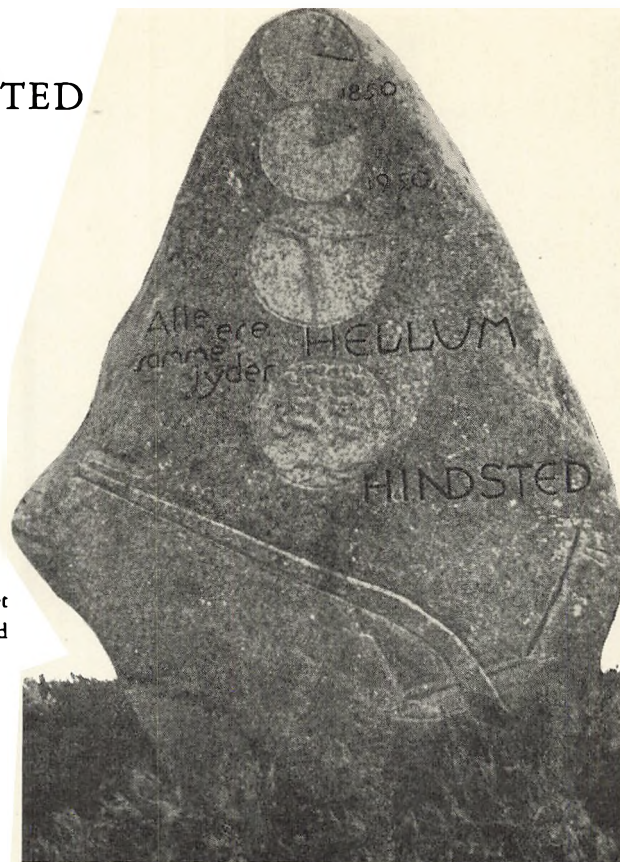 TED
1850
1950
Alle ere
samme
jyder
HELLUM
HINDSTED